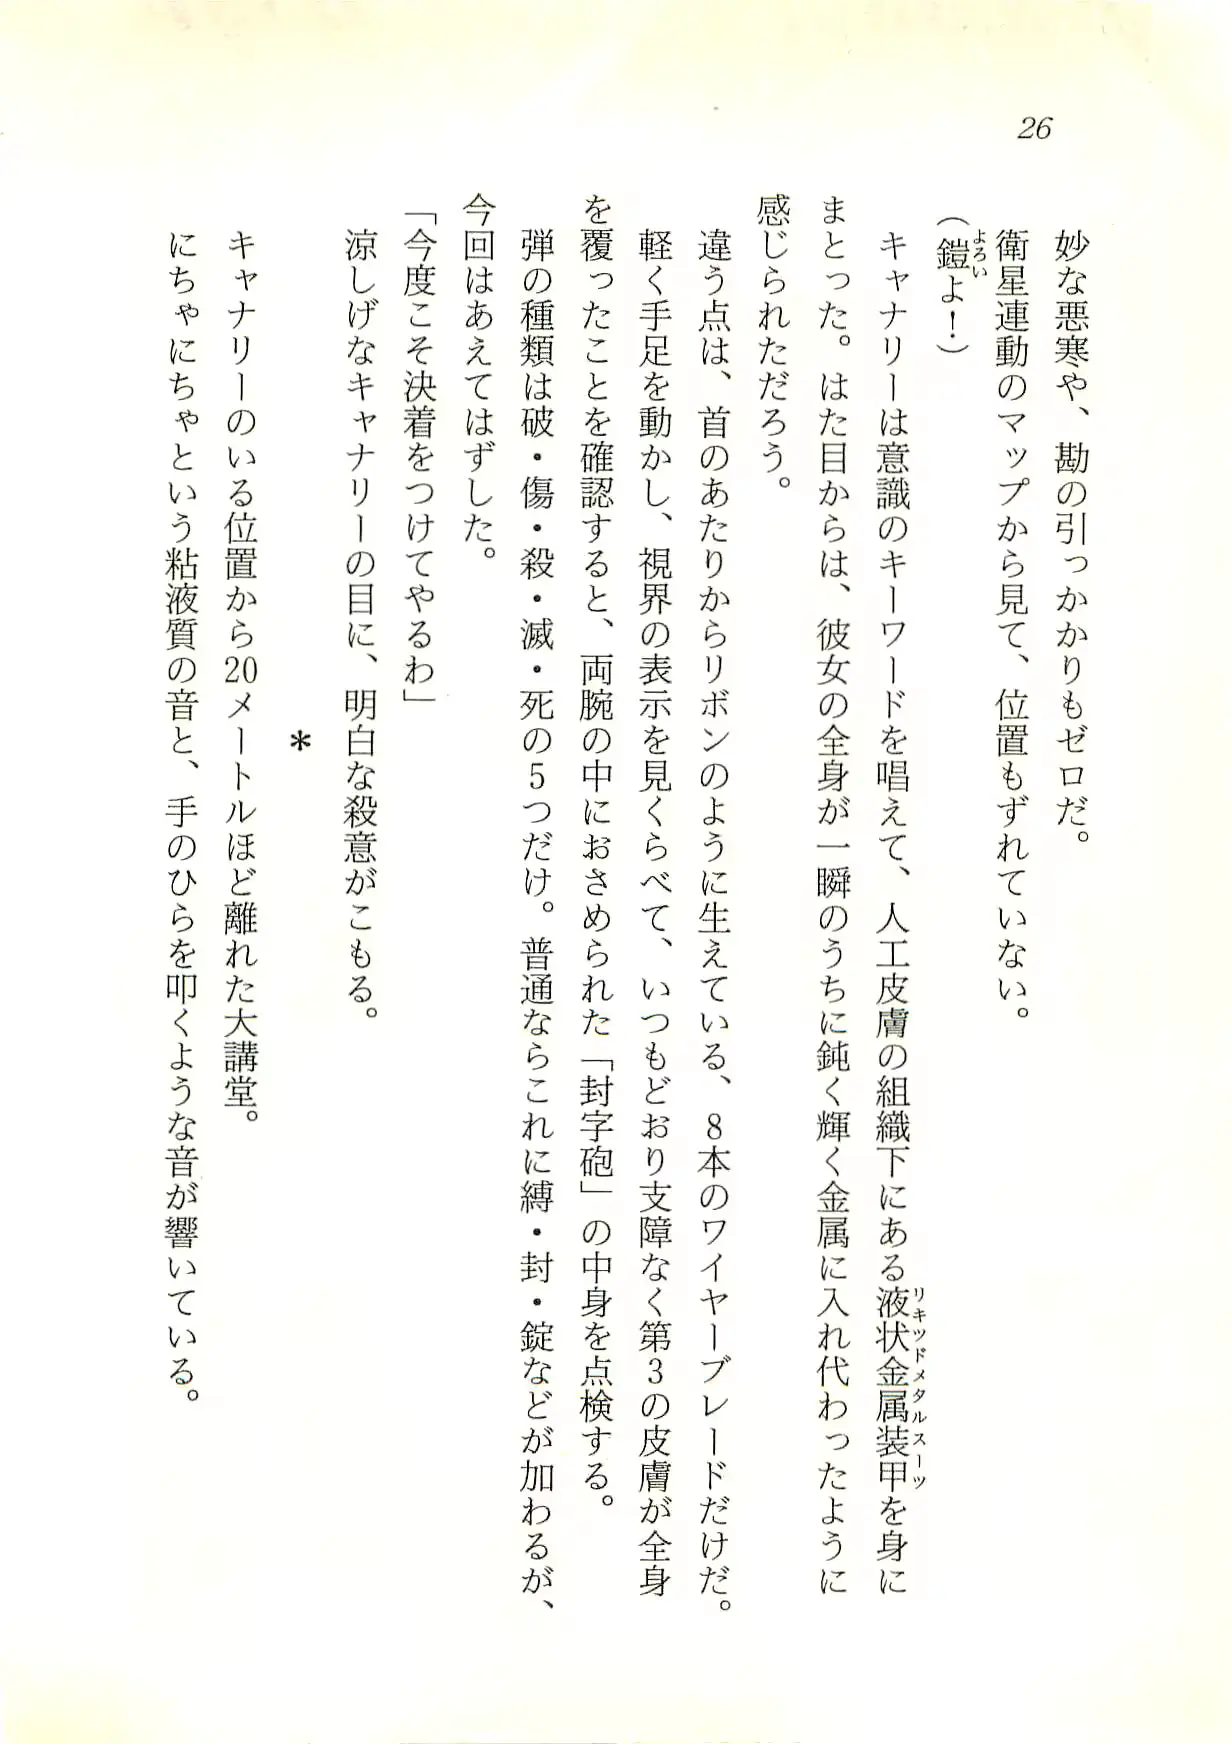 26
妙な悪寒や、勘の引っかかりもゼロだ。
衛星連動のマップから見て、位置もずれていない。
（鎧よ！）
よろい
キャナリーは意識のキーワードを唱えて、人工皮膚の組織下にある液状金属装甲を身に
リキッドメタルスーツ
まとった。はた目からは、彼女の全身が一瞬のうちに鈍く輝く金属に入れ代わったように
感じられただろう。
違う点は、首のあたりからリボンのように生えている、8本のワイヤーブレードだけだ。
軽く手足を動かし、視界の表示を見くらべて、いつもどおり支障なく第3の皮膚が全身
を覆ったことを確認すると、両腕の中におさめられた「封字砲」の中身を点検する。
弾の種類は破・傷・殺・滅・死の5つだけ。普通ならこれに縛・封・錠などが加わるが、
今回はあえてはずした。
「今度こそ決着をつけてやるわ」
涼しげなキャナリーの目に、明白な殺意がこもる。
＊
キャナリーのいる位置から20メートルほど離れた大講堂。
にちゃにちゃという粘液質の音と、手のひらを叩くような音が響いている。